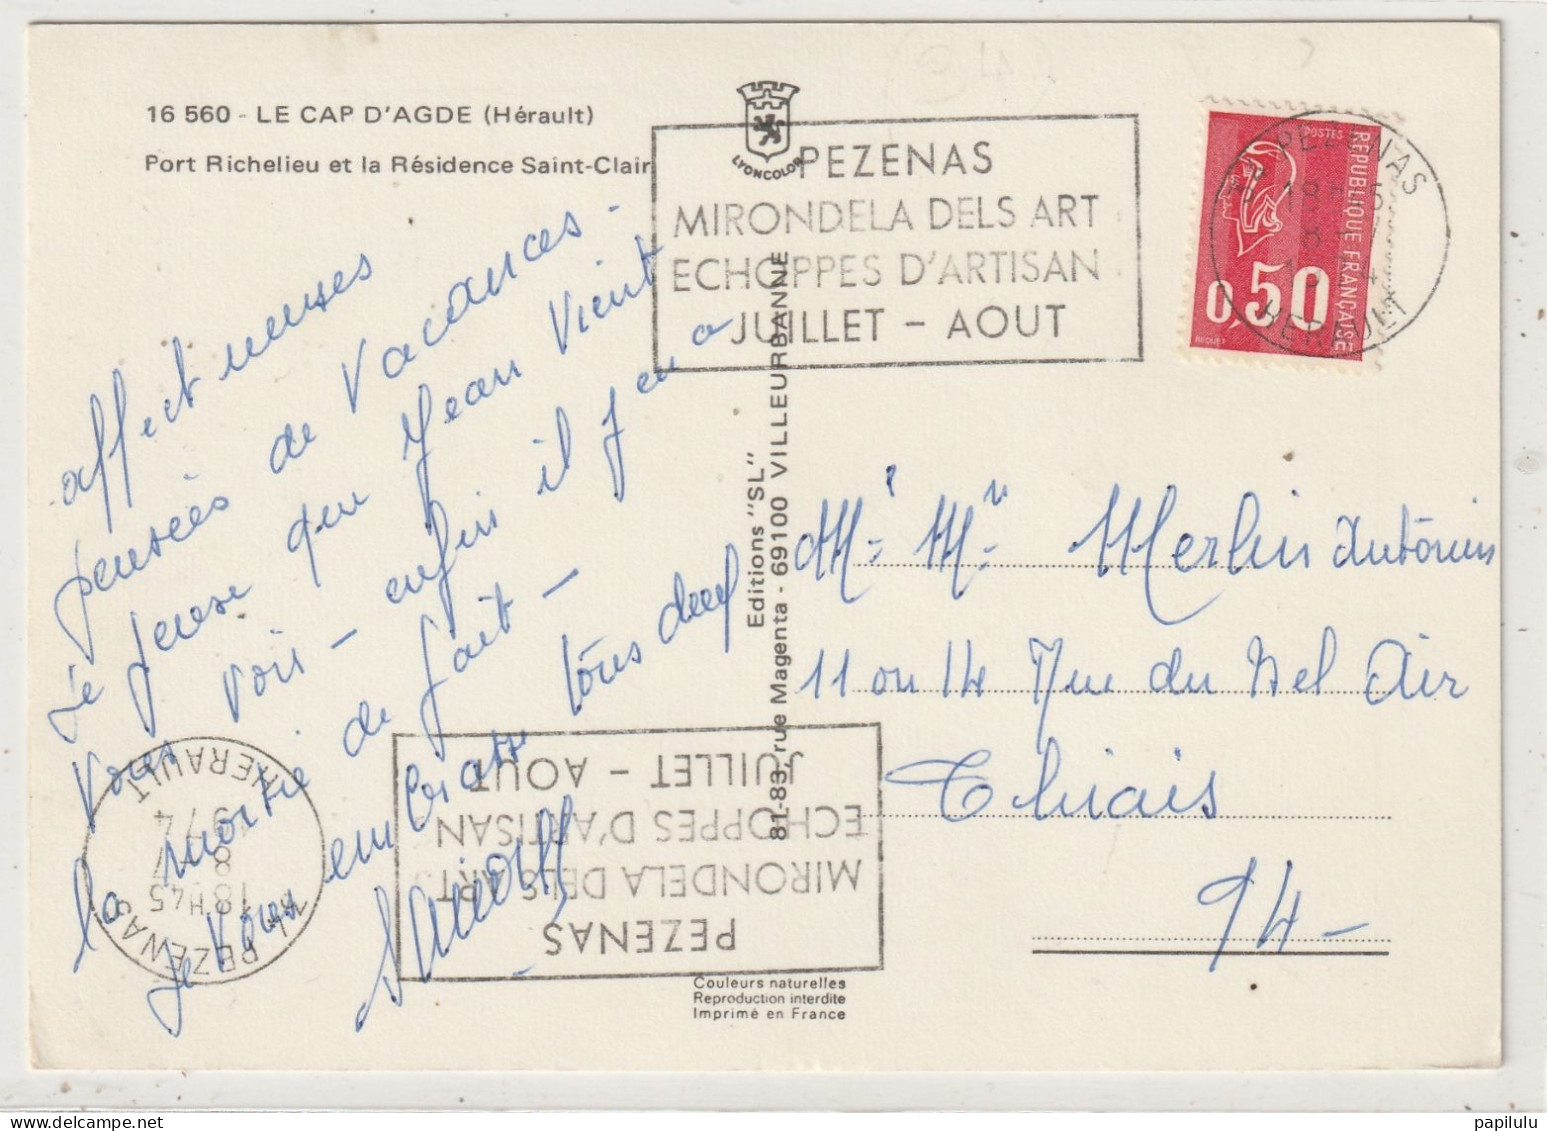 16 560 - LE CAP D'AGDE (Hérault)
Port Richelieu et la Résidence Saint-Clair
LYONCOLOR
PEZENAS
MIRONDELA DELS ART
ECHOPPES D'ARTISAN
JUILLET - AOUT
34 PEZENAS
18H45
8 - 7
1974
HERAULT
POSTES
REPUBLIQUE FRANÇAISE
0,50
BEQUET
affectueuses
pensées de Vacances -
je pense que Jean Vient
Vous voir - enfin il y en a
la moitié de fait -
je Vous embrasse tous deux
Editions "SL"
81-83, rue Magenta - 69100 VILLEURBANNE
Mr Mr Merlin Antonin
11 ou 14 Rue du Bel Air
Thiais
94 -
34 PEZENAS
18H45
8 - 7
1974
HERAULT
PEZENAS
MIRONDELA DELS ART
ECHOPPES D'ARTISAN
JUILLET - AOUT
Couleurs naturelles
Reproduction interdite
Imprimé en France
papilulu